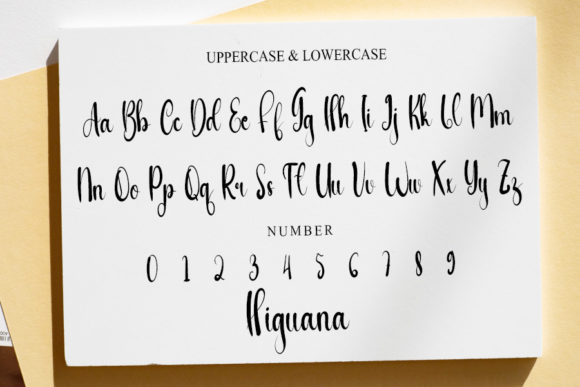 UPPERCASE & LOWERCASE
Aa Bb Cc Dd Ee Ff Gg Hh Ii Jj Kk Ll Mm
Nn Oo Pp Qq Rr Ss Tt Uu Vv Ww Xx Yy Zz
NUMBER
0 1 2 3 4 5 6 7 8 9
Higuana